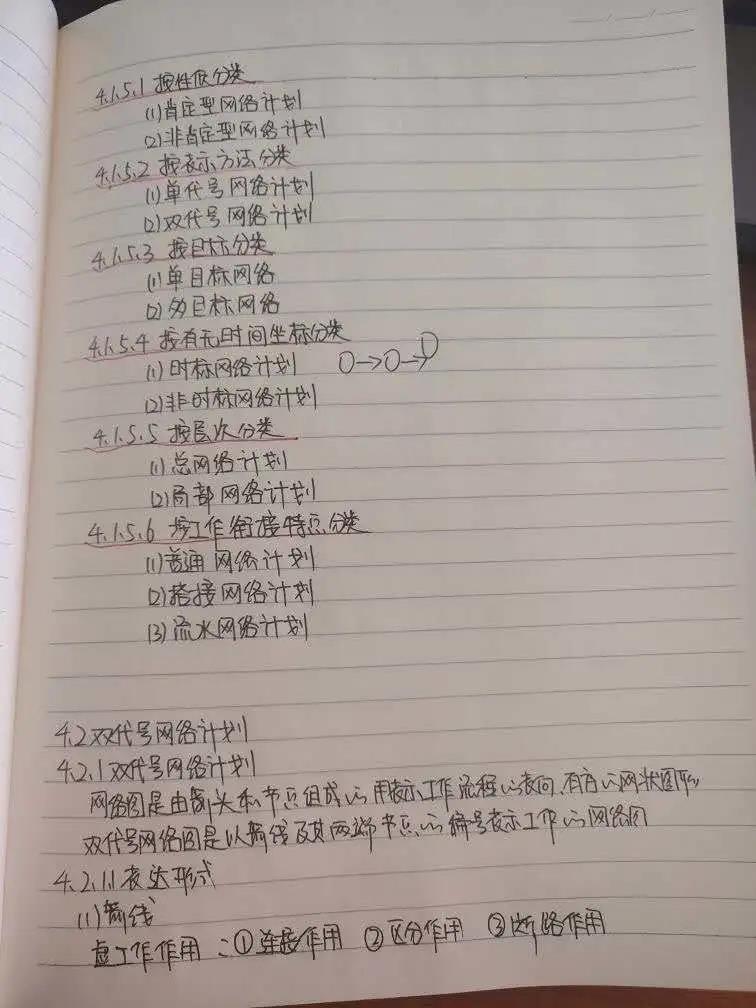 4.1.5.1 按性质分类
(1)肯定型网络计划
(2)非肯定型网络计划
4.1.5.2 按表示方法分类
(1)单代号网络计划
(2)双代号网络计划
4.1.5.3 按目标分类
(1)单目标网络
(2)多目标网络
4.1.5.4 按有无时间坐标分类
(1)时标网络计划
(2)非时标网络计划
4.1.5.5 按层次分类
(1)总网络计划
(2)局部网络计划
4.1.5.6 按工作衔接特点分类
(1)普通网络计划
(2)搭接网络计划
(3)流水网络计划
4.2双代号网络计划
4.2.1双代号网络计划
网络图是由箭头和节点组成的用表示工作流程的 有方的网状图形
双代号网络图是以箭线及其两端节点的编号表示工作的网络图
4.2.1.1表达形式
(1)箭线
虚工作作用:①连接作用 ②区分作用 ③断路作用